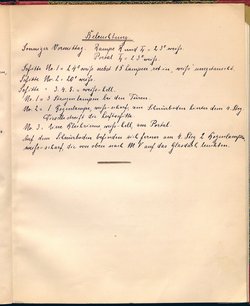 Beleuchtung
Sonniger Vormittag. Rampe R und L = 23° weiss.
Portal L = 23° weiss.
Sofitte No. 1 = 24° weiss nebst 15 Lampen rot in weiss umgetauscht.
Sofitte No. 2 = 20° weiss.
Sofitte = 3. 4. 5. = weiss-hell.
No. 1 = 3 Bogenlampen bei den Türen.
No. 2 = 1 Bogenlampe, weiss-scharf, am Schnürboden hinter dem 4. Steg
der Luftsofitte
No. 3 = Eine weiss-hell, am Portal.
Auf dem Schnürboden befinden sich ferner am 4. Steg 2 Bogenlampen,
weiss-scharf die von oben nach M V auf das Glasdach leuchten.